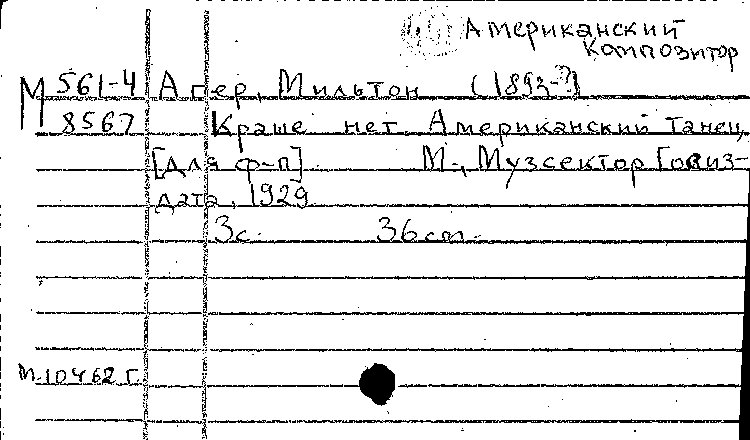 Американский
композитор
М 561-4 Агер, Мильтон (1893-?)
8567 Краше нет. Американский танец
[для ф-п] М., Музсектор Госиз-
дата, 1929
3с. 36 см.
М.10462 г.